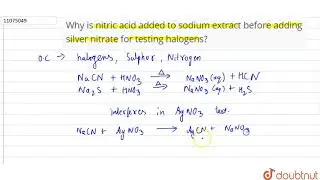 11075049
Why is nitric acid added to sodium extract before adding
silver nitrate for testing halogens?
O.C → halogens, Sulphur, Nitrogen
NaCN + HNO3 →Δ NaNO3(aq) + HCN
Na2S + HNO3 →Δ NaNO3(aq) + H2S
interferes in AgNO3 test.
NaCN + AgNO3 → AgCN + NaNO3
doubtnut